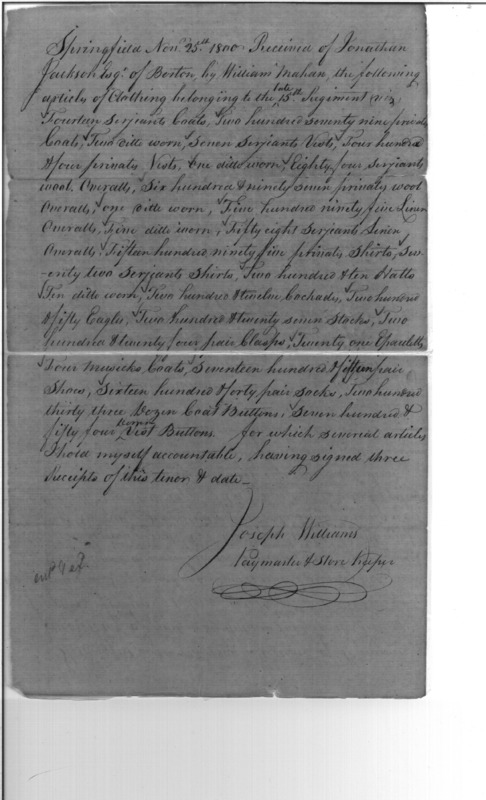 Springfield Nov. 25th. 1800 Received of Jonathan
Jackson Esqr. of Boston, by William Mahan, the following
articles of Clothing belonging to the late 15th Regiment viz
Fourteen Serjeants Coats, Two hundred seventy nine privates
Coats, Two ditto worn, Seven Serjeants Vests, Four hundred
& four privates Vests, One ditto worn, Eighty four Serjeants
wool Overalls, Six hundred & ninety seven privates wool
Overalls, one ditto worn, Five hundred ninety five Linen
Overalls, Five ditto worn, Fifty eight Serjeants Linen
Overalls, Fifteen hundred ninety five privates Shirts, Sev-
-enty two Serjeants Shirts, Two hundred & ten Hatts
Ten ditto worn, Two hundred & twelve Cockades, Two hundred
& fifty Eagles, Two hundred & twenty seven Stocks, Two
hundred & twenty four pair Clasps, Twenty one Epauletts
Four Musicks Coats, Seventeen hundred & fifteen pair
Shoes, Sixteen hundred & forty pair socks, Two hundred
thirty three Dozen Coat Buttons, Seven hundred &
fifty four Dozen Vest Buttons. for which several articles
I hold myself accountable, having signed three
Receipts of this tenor & date—
Joseph Williams
Paymaster & Store Keeper